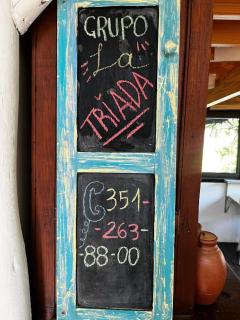 GRUPO
"La"
TRÍADA
351-
-263-
-88-00